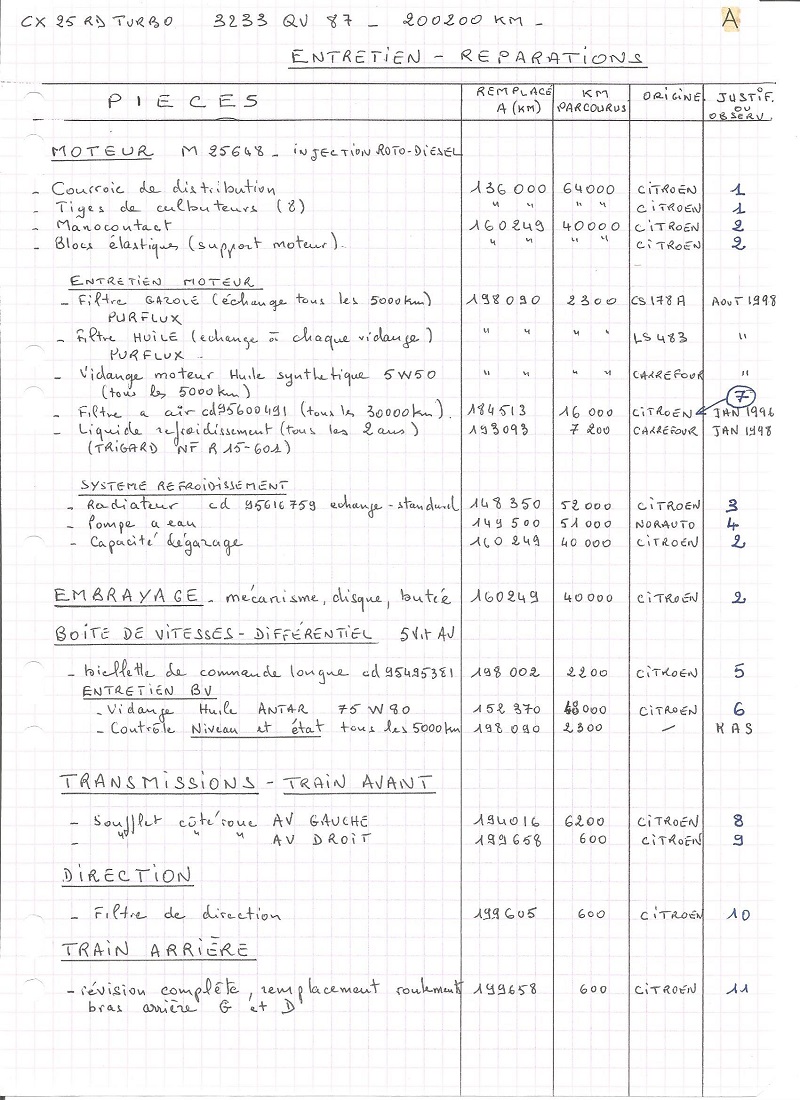 CX 25 RD TURBO 3233 QV 87 - 200200 KM - A
ENTRETIEN - REPARATIONS
PIECES REMPLACÉ A (KM) KM PARCOURUS ORIGINE JUSTIF. OU OBSERV.
MOTEUR M 25648 - INJECTION ROTO-DIESEL
- Courroie de distribution 136 000 64000 CITROEN 1
- Tiges de culbuteurs (8) " " " " CITROEN 1
- Manocontact 160249 40000 CITROEN 2
- Blocs élastiques (support moteur). " " " " CITROEN 2
ENTRETIEN MOTEUR
- Filtre GAZOLE (échange tous les 5000km) 198 090 2300 CS178A AOUT 1998
PURFLUX
- Filtre HUILE (echange à chaque vidange) " " " " LS483 "
PURFLUX -
- Vidange moteur Huile synthetique 5W50 " " " " CARREFOUR "
(tous les 5000km) 7
- Filtre a air cd95600491 (tous les 30000km). 184513 16 000 CITROEN JAN 1996
- Liquide refroidissement (tous les 2 ans) 193093 7 200 CARREFOUR JAN 1998
(TRIGARD NF R 15-601)
SYSTEME REFROIDISSEMENT
- Radiateur cd 95616759 echange-standard 148 350 52 000 CITROEN 3
- Pompe a eau 149 500 51 000 NORAUTO 4
- Capacité dégazage 160 249 40 000 CITROEN 2
EMBRAYAGE - mécanisme, disque, butée 160249 40000 CITROEN 2
BOITE DE VITESSES - DIFFÉRENTIEL 5Vit AV
- biellette de commande longue cd 95495381 198 002 2200 CITROEN 5
ENTRETIEN BV
- Vidange Huile ANTAR 75 W 80 152 370 48000 CITROEN 6
- Contrôle Niveau et état tous les 5000km 198 090 2300 - RAS
TRANSMISSIONS - TRAIN AVANT
- Soufflet côté roue AV GAUCHE 194016 6200 CITROEN 8
- " " " AV DROIT 199658 600 CITROEN 9
DIRECTION
- Filtre de direction 199605 600 CITROEN 10
TRAIN ARRIÈRE
- révision complète, remplacement roulements 199658 600 CITROEN 11
bras arrière G et D